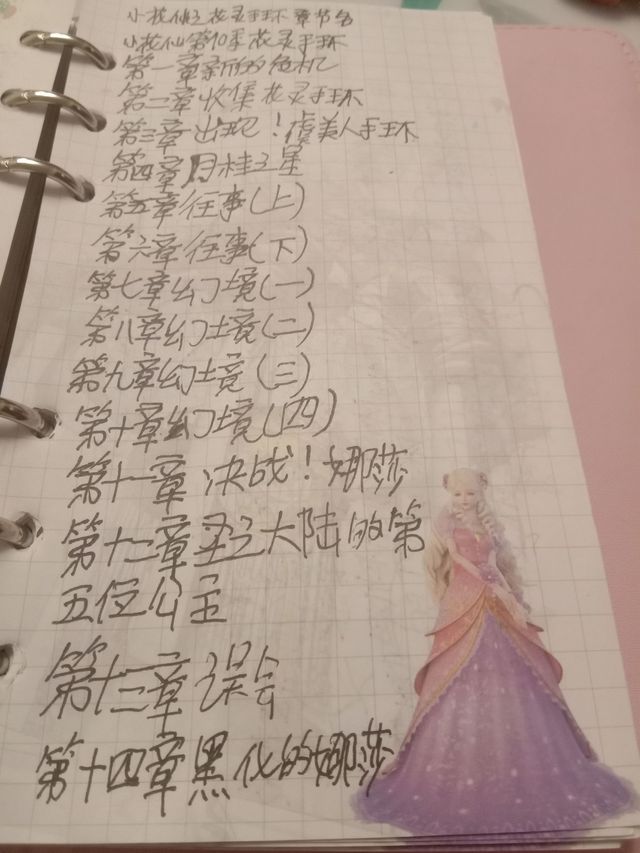 小花仙之花灵手环章节名
小花仙第10季花灵手环
第一章新的危机
第二章收集花灵手环
第三章出现！虞美人手环
第四章月桂之星
第五章往事(上)
第六章往事(下)
第七章幻境(一)
第八章幻境(二)
第九章幻境(三)
第十章幻境(四)
第十一章决战！娜莎
第十二章圣之大陆的第
五位公主
第十三章误会
第十四章黑化的娜莎